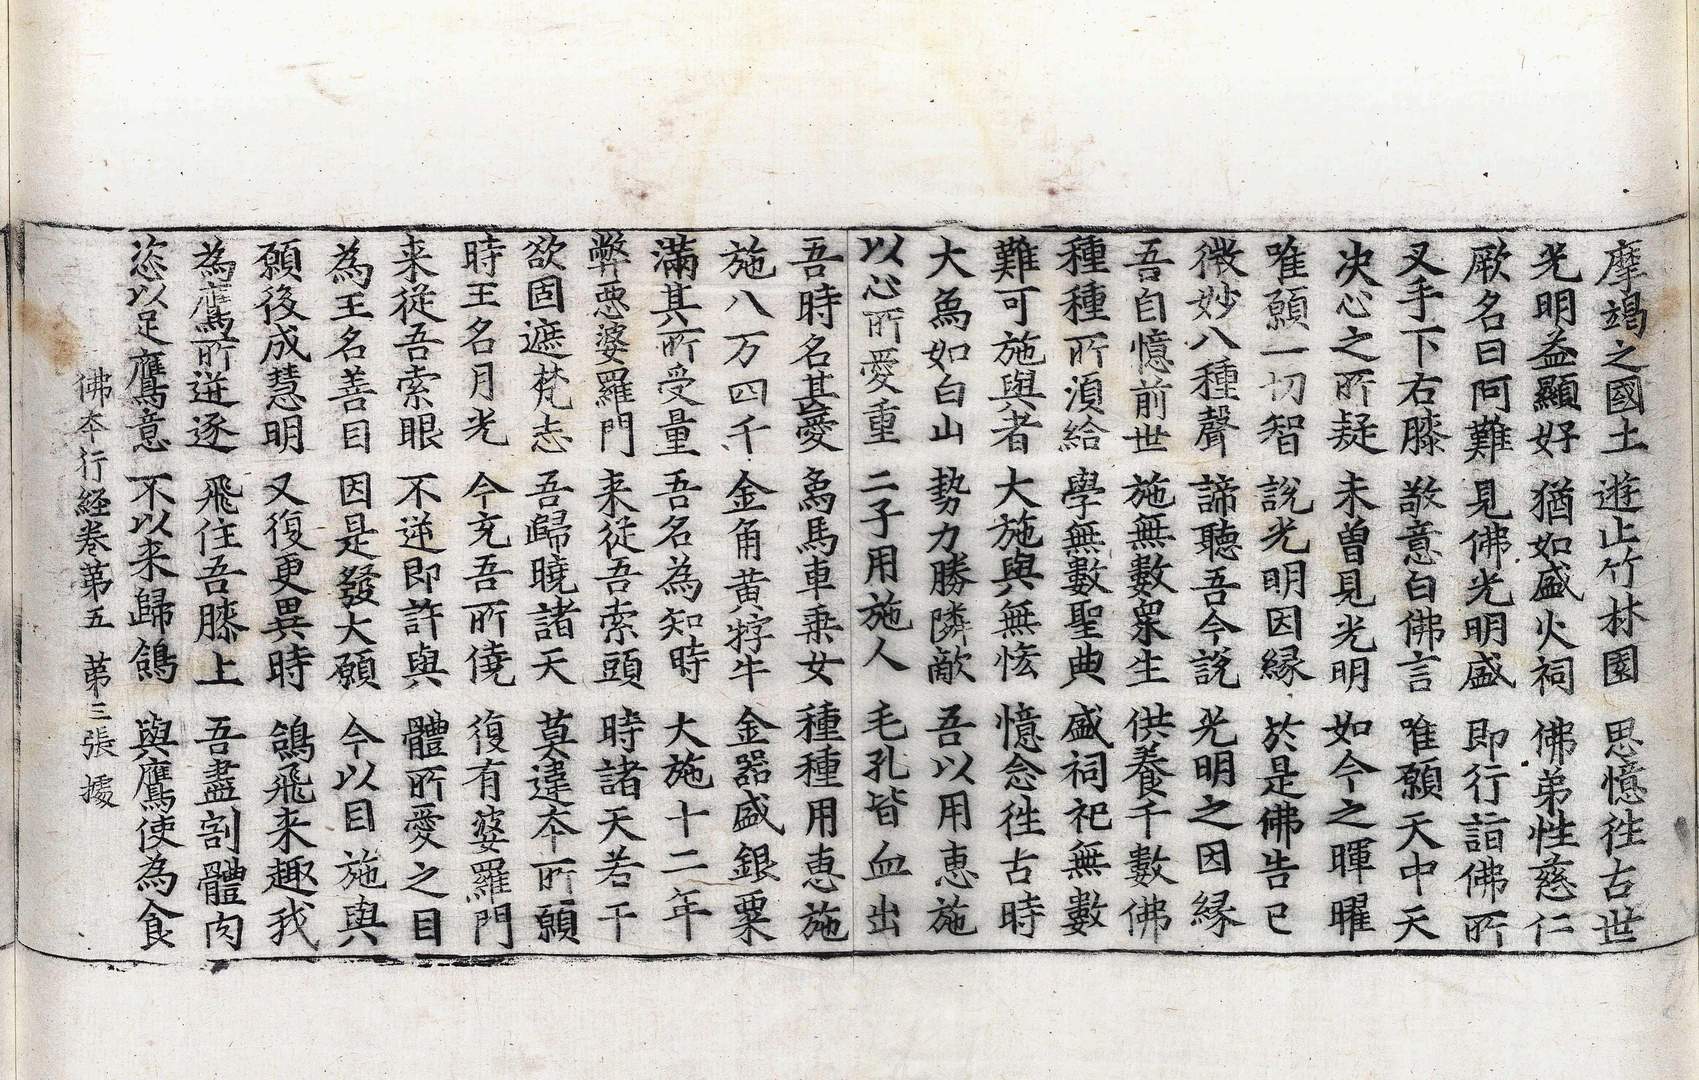 摩竭之國土 遊止竹林園 思憶往古世
光明益顯好 猶如盛火祠 佛弟性慈仁
厥名曰阿難 見佛光明盛 即行詣佛所
叉手下右膝 敬意白佛言 唯願天中天
决心之所疑 未曾見光明 如今之暉曜
唯願一切智 說光明因緣 於是佛告已
微妙八種聲 諦聽吾今說 光明之因緣
吾自憶前世 施無數衆生 供養千數佛
種種所湏給 學無數聖典 盛祠祀無數
難可施與者 大施與無悋 憶念往古時
大為如白山 勢力勝隣敵 吾以用惠施
以心所愛重 二子用施人 毛孔皆血出
吾時名基愛 為馬車乗女 種種用惠施
施八万四千 金角黄牸牛 金器盛銀粟
滿其所受量 吾名為知時 大施十二年
弊惡婆羅門 来從吾索頭 時諸天若干
欲固遮梵志 吾歸曉諸天 莫違夲所願
時王名月光 今充吾所僥 復有婆羅門
来從吾索眼 不逆即許與 體所愛之目
為王名善目 因是發大願 今以目施與
願後成慧明 又復更異時 鴿飛来趣我
為鷹所逬逐 飛住吾膝上 吾盡割體肉
恣以足鷹意 不以来歸鴿 與鷹使為食
佛夲行経卷苐五 苐三張 㩀